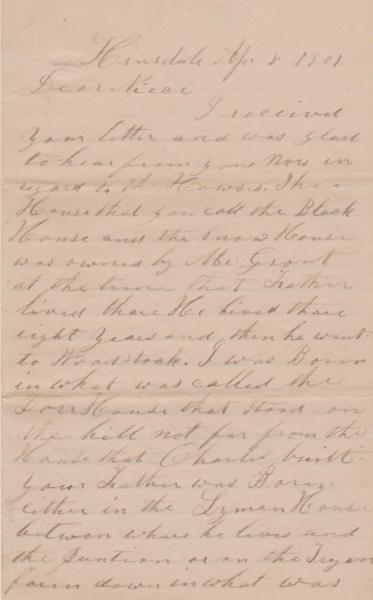 Hinsdale Apr 8 1901
Dear Niece
I recieved
your letter and was glad
to hear from you Now in
regard to the Howses. The
House that you call the Black
House and the Snow House
was owned by Mr Grout
at the time that Father
lived thare He lived thare
eight Years and then he went
to Woodstock. I was Born
in what was called the
Dorr House that stood on
the hill not far from the
House that Charles built.
Your Father was Born
either in the Lyman House
between whare he lives and
the Juntion or on the
farm down in what was